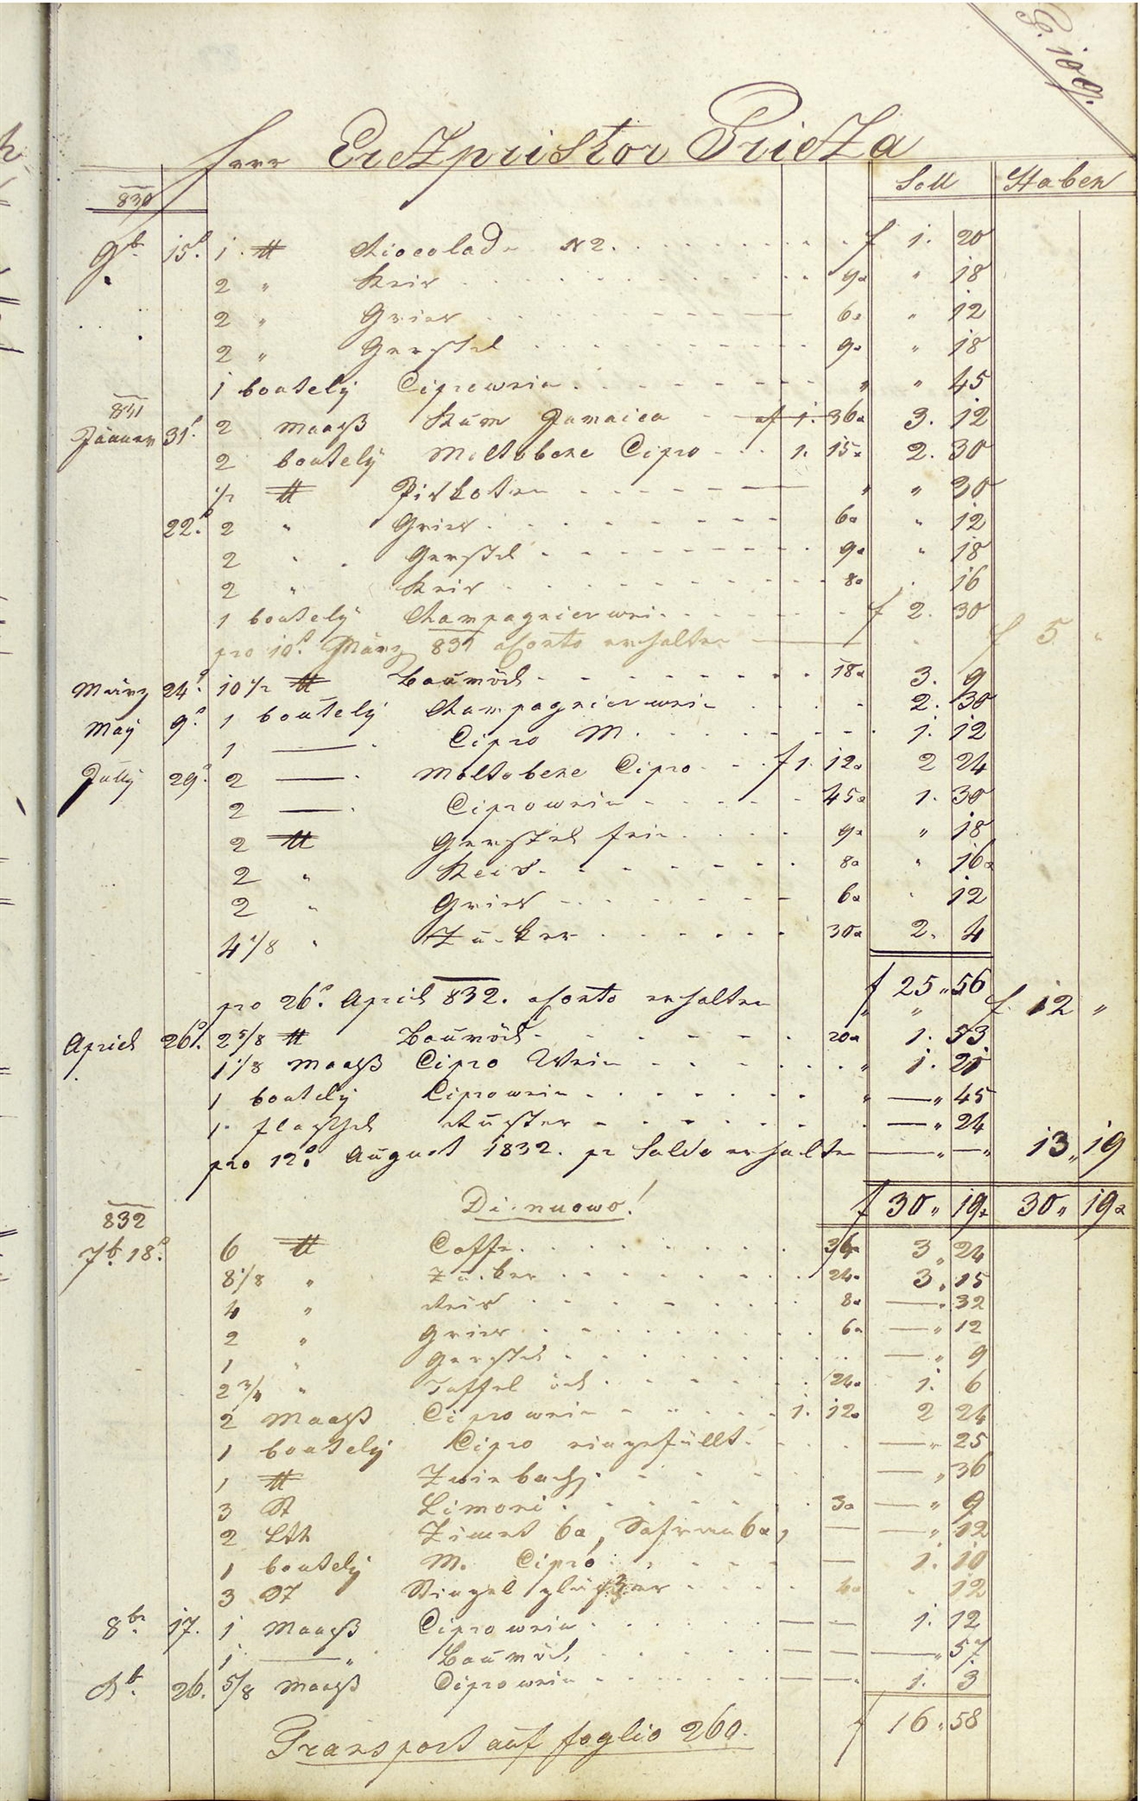 P. 109.
Herr Ertzpristor Prietza
Soll Haben
830
9b. 15t 1. ℔ Chiocolade N 2. f 1. 20
2 " Reis 9x " 18
2 " Gries 6x " 12
2 " Gerstel 9x " 18
1 boutely Ciprowein " " 45
831
Jänner 31t 2 Maaß Rum Jamaica f 1. 36x 3. 12
2 boutely Meltobene Cipro 1. 15x 2. 30
1/2 ℔ Piskoten " " 30
22t 2 " Gries 6x " 12
2 " Gerstel 9x " 18
2 " Reis 8x . 16
1 boutely Champagnierwein f 2. 30
pro 10t März 831 aConto erhalten f 5 "
März 24t 10 1/2 ℔ Baumöel 18x 3. 9
May 9t 1 boutely Champagnierwein 2. 30
1 — Cipro M. 1. 12
July 29t 2 — Meltobene Cipro f 1. 12x 2 24
2 — Ciprowein 45x 1. 30
2 ℔ Gerstel fein 9x " 18
2 " Reis 8x " 16x
2 " Gries 6x " 12
4 1/8 " Zucker 30x 2. 4
f 25 " 56
pro 26t April 832. aConto erhalten " " f. 12 "
April 26t. 2 5/8 ℔ Baumöel 20x 1. 53
1 1/8 Maaß Cipro Wein " 1. 21
1 boutely Ciprowein " — " 45
1 flaschel — " 24
pro 12t August 1832. pr Saldo erhalten — " — " 13 " 19
f 30 " 19x 30 " 19x
Di nuowo!
832
7b. 18t 6 ℔ Caffe 3 " 24
8 1/8 " Zucker 24x 3 " 15
4 " Reis 8x — " 32
2 " Gries 6x — " 12
1 " Gerstel — " 9
2 3/4 " Taffel öel 24x 1. 6
2 Maaß Ciprowein 1. 12x 2 24
1 boutely Cipro eingefüllt — " 25
1 ℔ Zwieback — " 36
3 St Limoni 3x — " 9
2 Lth Zimet 6x, Safran 6x, — — " 12
1 boutely M. Cipro — 1. 10
3 St Stingel gläser 4x . 12
8b. 17. 1 Maaß Ciprowein — — 1. 12
1 — " Baumöel — — — " 57
26. 5/8 Maaß Ciprowein — — 1. 3
Transport auf foglio 260. f 16 " 58